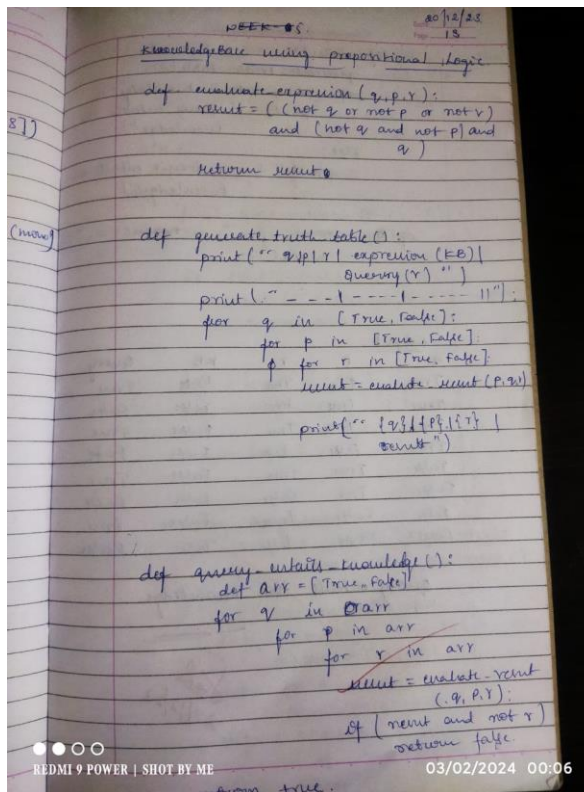 WEEK-05.
20/12/23
13
KnowledgeBase using propositional Logic.
def evaluate-expression (q,p,r):
result = ( (not q or not p or not r)
and (not q and not p) and
q )
return result
def generate_truth_table():
print (" q|p| r | expression (KB) |
Query (r) " )
print (." - - - | - - - - | - - - - - ||");
for q in [True, False]:
for p in [True, False]:
for r in [True, False]:
result = evaluate_result (p,q,r)
print(" {q}|{p}|{r} |
result")
def query-entails-knowledge():
def arr = [True, False]
for q in arr
for p in arr
for r in arr
result = evaluate-result
(.q, p, r):
if (result and not r)
return false.
return true.
8])
(mono)
REDMI 9 POWER | SHOT BY ME
03/02/2024 00:06